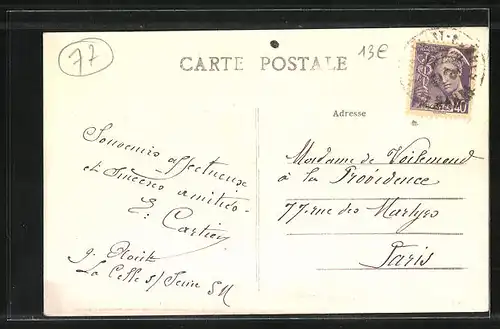 77
13€
CARTE POSTALE
Adresse
Souvenirs affectueux
et sincères amitiés
E. Cartier
La Celle s/ Seine SM
Madame de Voilemond
à la Providence
77 rue des Martyrs
Paris
40